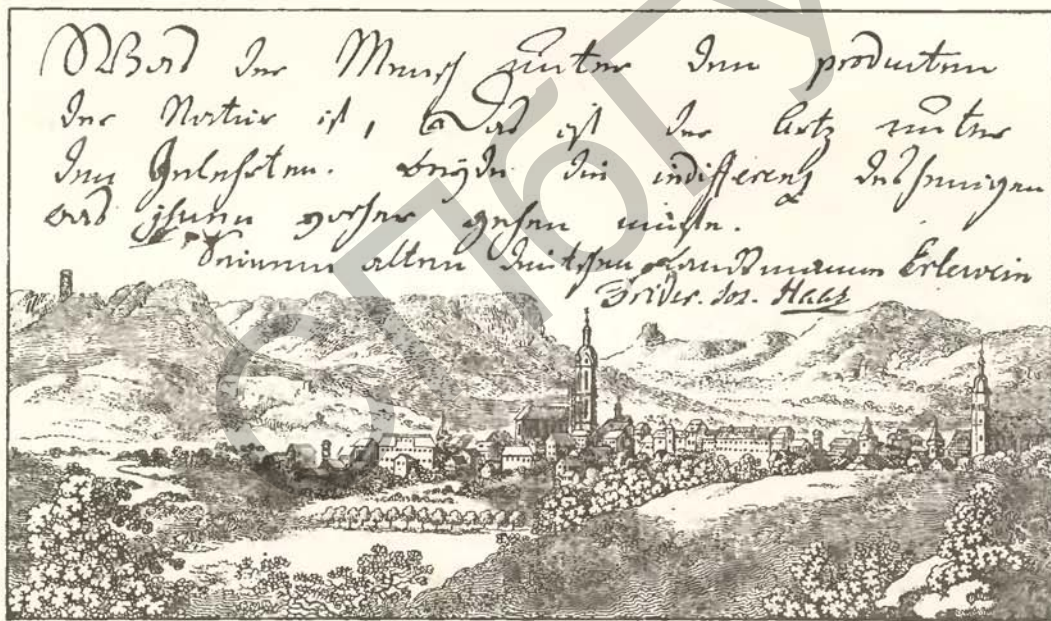 Was der Mensch unter den producten
der Natur ist, Das ist der Artz unter
den Gelehrten. Beyde die indifferenz desjenigen
was ihnen vorher gehen
Seinem alten deutschen Landsmann Erlewein
Frider. Jos. Haas